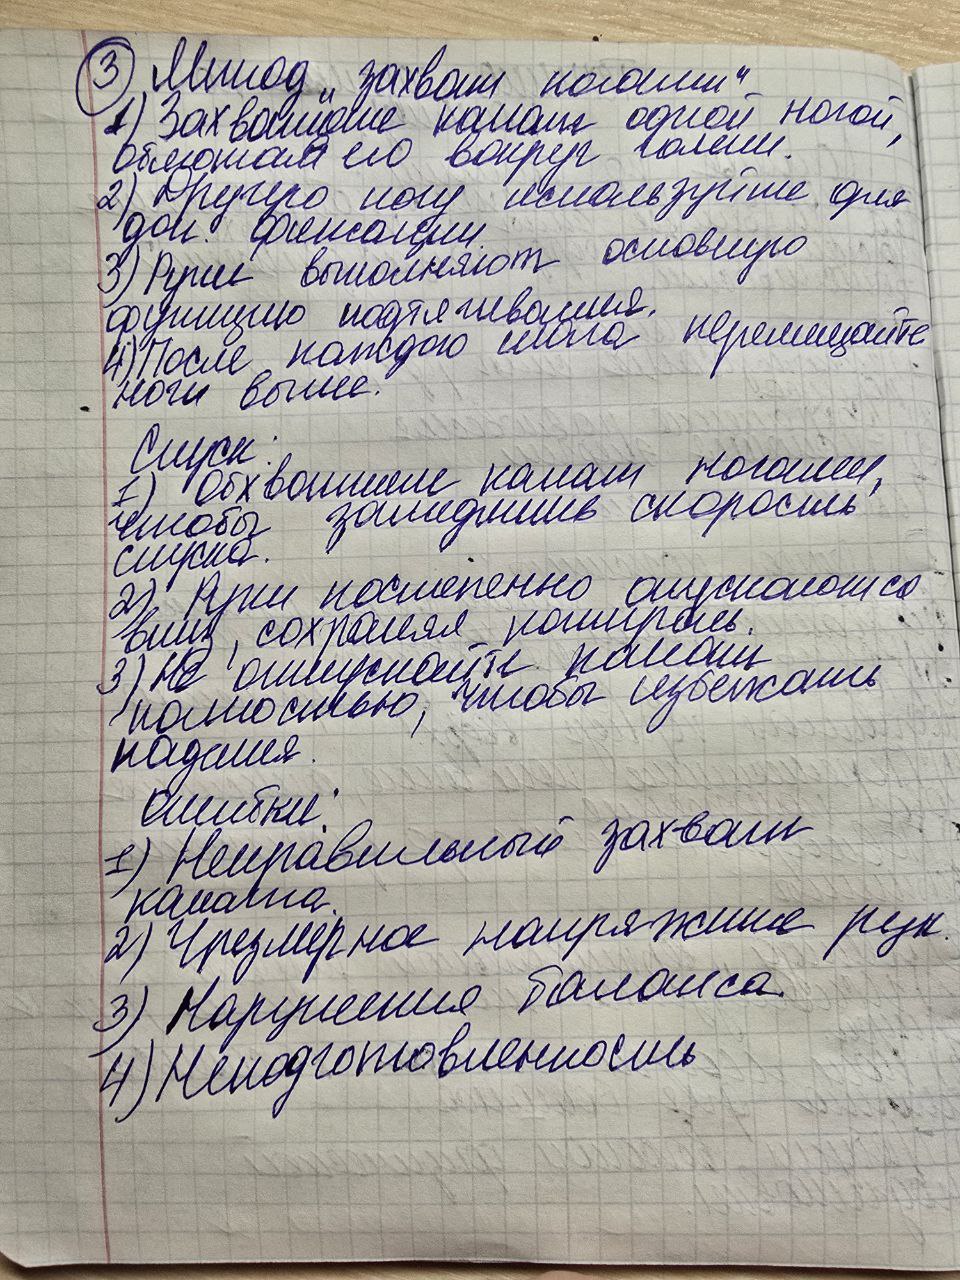 ③ Метод „захват ногами"
1) Захватите канат одной ногой,
обмотав его вокруг голени.
2) Другую ногу используйте для
доп. фиксации.
3) Руки выполняют основную
функцию подтягивания.
4) После каждого хвата перемещайте
ноги выше.
Спуск:
1) Обхватите канат ногами,
чтобы замедлить скорость
спуска.
2) Руки постепенно опускаются
вниз, сохраняя контроль.
3) Не отпускайте канат
полностью, чтобы избежать
падения.
Ошибки:
1) Неправильный захват
каната.
2) Чрезмерное напряжение рук.
3) Нарушения баланса.
4) Неподготовленность